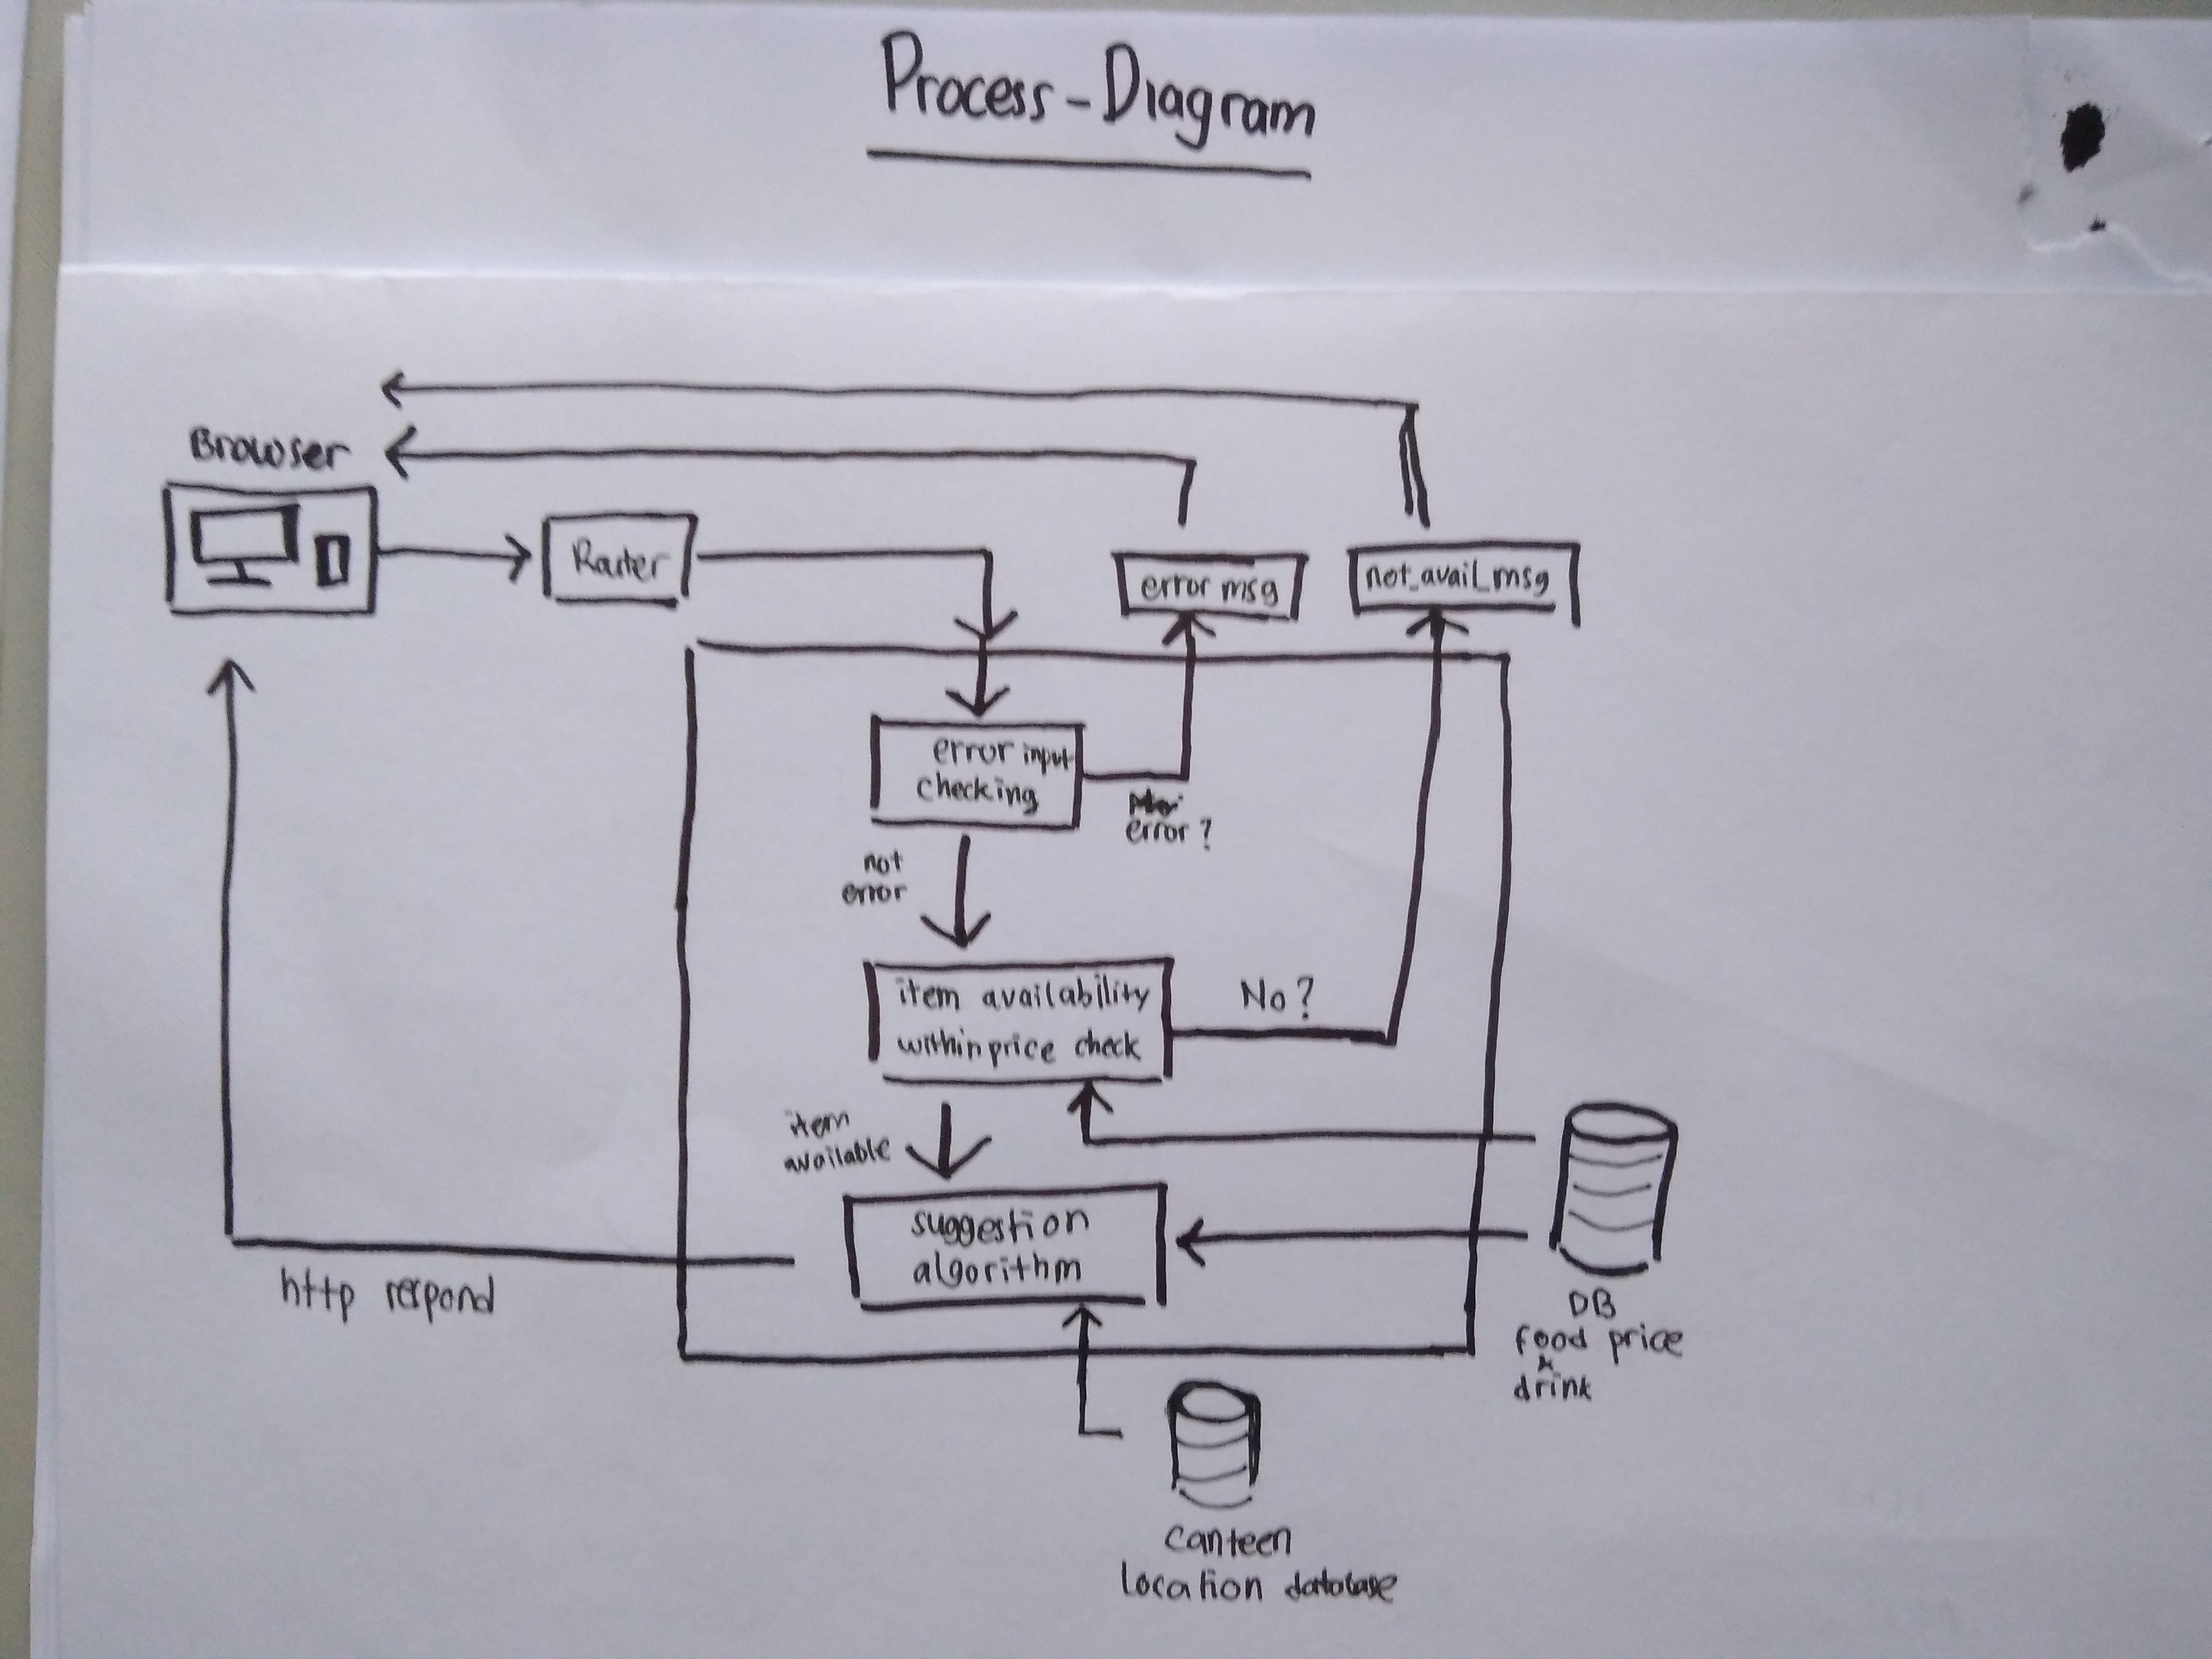 Process-Diagram
Browser
Router
error msg
not_avail_msg
error input
checking
error?
not
error
item availability
within price check
No?
item
available
suggestion
algorithm
http respond
DB
food price
&
drink
canteen
location database